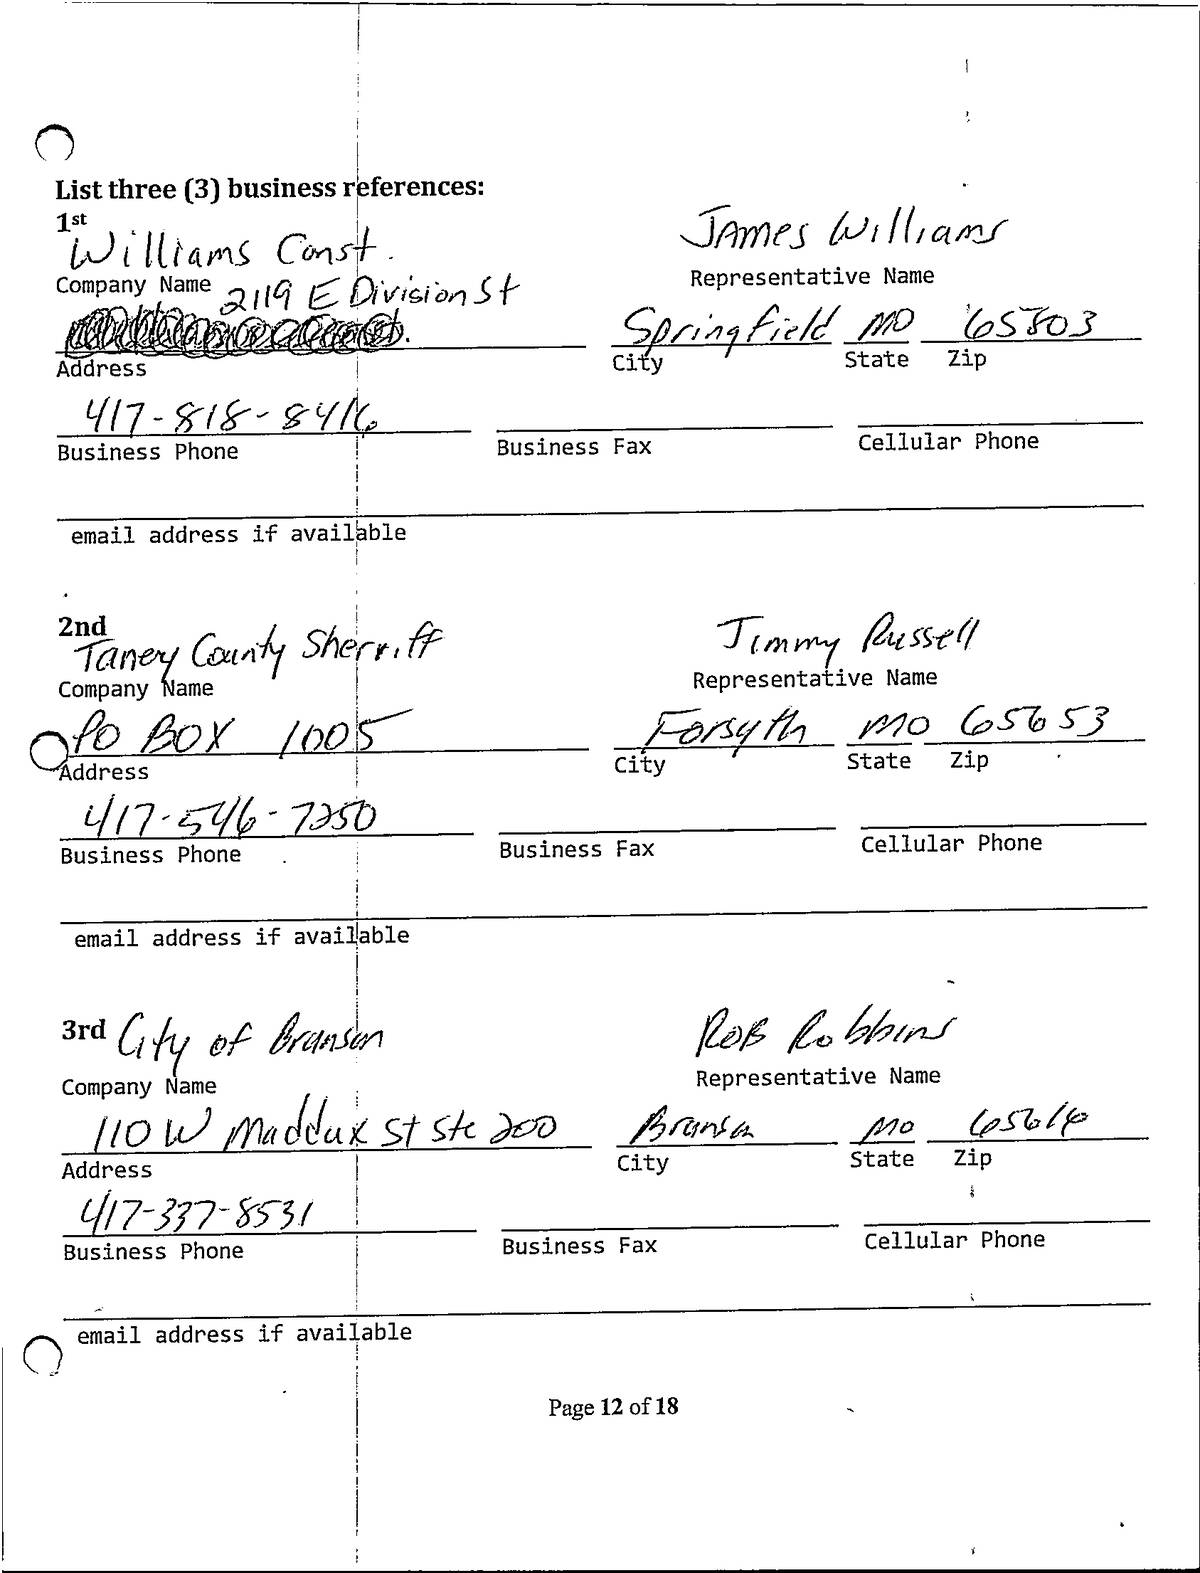 List three (3) business references:
1st
Williams Const. James Williams
Company Name Representative Name
2119 E Division St
Springfield MO 65803
Address City State Zip
417-818-8416
Business Phone Business Fax Cellular Phone
email address if available
2nd
Taney County Sherriff Jimmy Russell
Company Name Representative Name
PO BOX 1005 Forsyth MO 65653
Address City State Zip
417-546-7250
Business Phone Business Fax Cellular Phone
email address if available
3rd City of Branson Rob Robbins
Company Name Representative Name
110 W Maddux St Ste 200 Branson MO 65616
Address City State Zip
417-337-8531
Business Phone Business Fax Cellular Phone
email address if available
Page 12 of 18